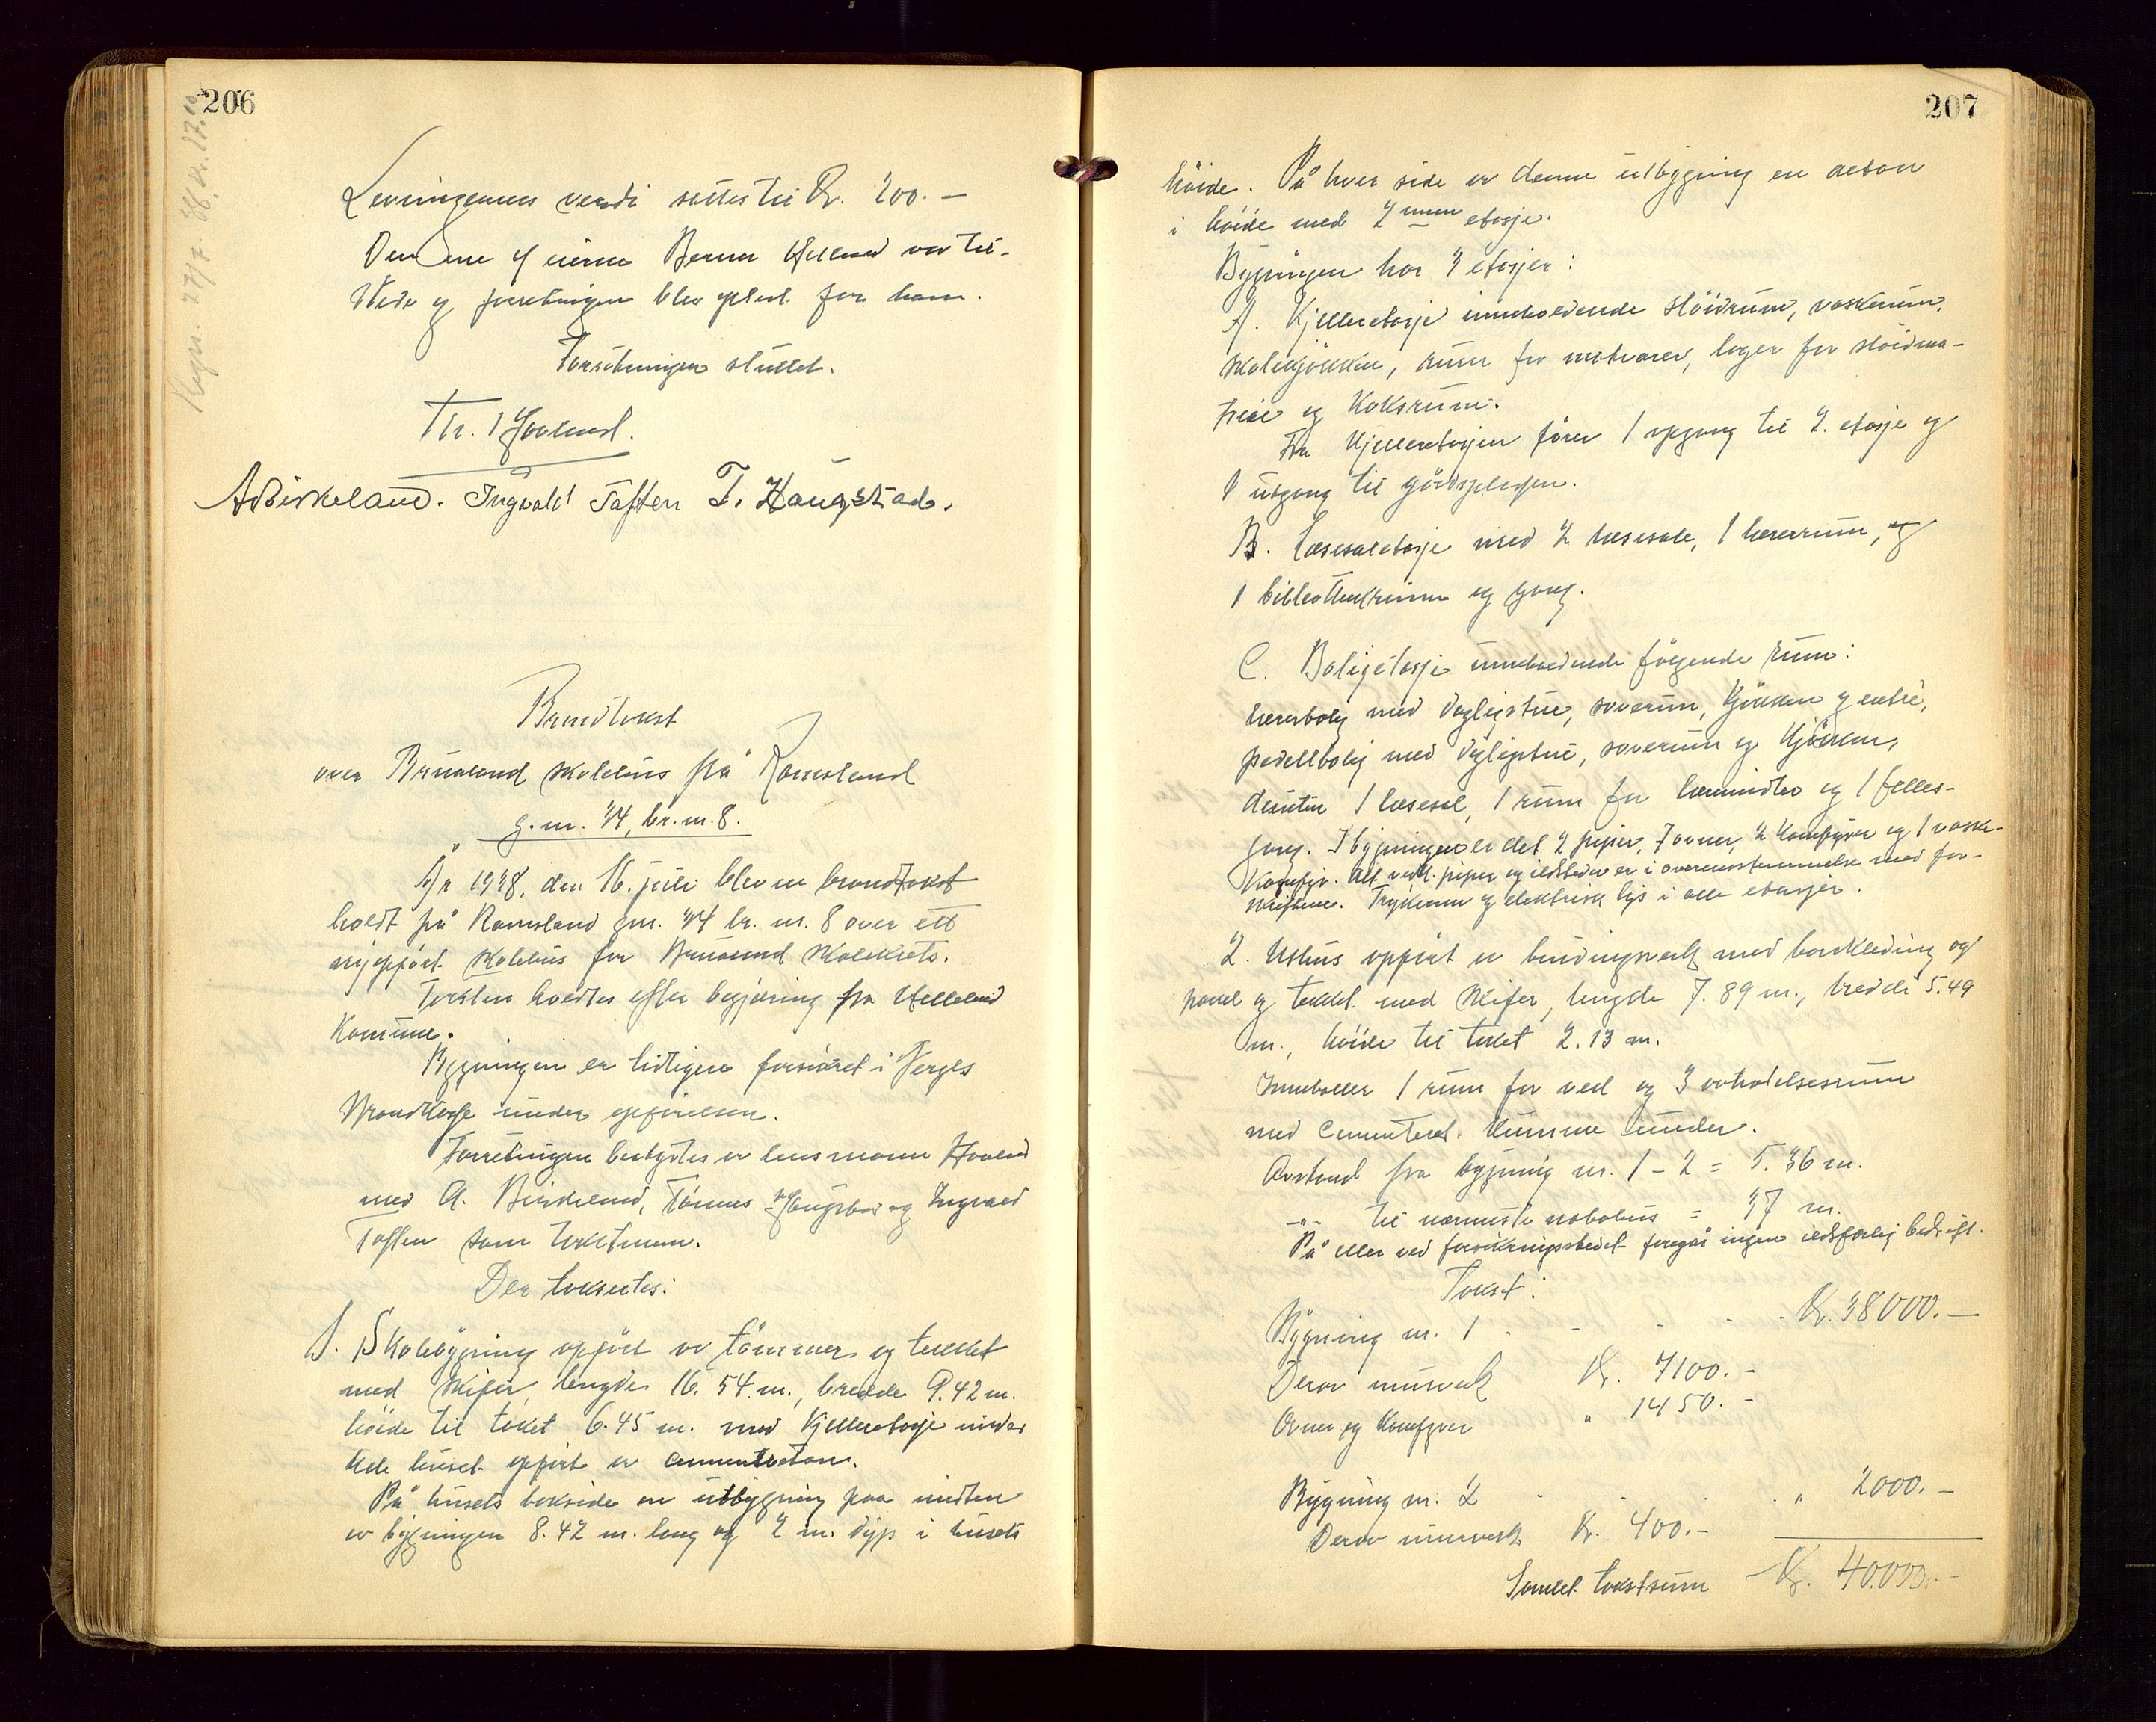 206
Levningenes verdi settes til Kr. 200.-
Den ene af eierne Berner Helland var til-
stede og forretningen blev oplest for ham.
Forretningen sluttet.
Th. Hovland.
A Birkeland. Ingvald Toften T. Haugstad.
Brandtakst
over Brualand skolehus på Ramsland
g.nr. 34, br.nr. 8.
År 1938, den 16. juli blev en brandtakst
holdt på Ramsland gnr. 34 br. nr. 8 over ett
nyopført skolehus for Brualand skolekrets.
Taksten holdtes efter begjæring fra Helleland
Kommune.
Bygningen er tidligere forsikret i Norges
Brandkasse under opførelsen.
Forretningen bestyrtes av lensmann Hovland
med A. Birkeland, Tønnes Haugstad og Ingvald
Toften som takstmenn.
Der takseres:
1. Skolebygning opført av tømmer og tekket
med skifer, lengde 16.54 m., bredde 9.42 m.
høide til taket 6.45 m. med kjelleretasje under
hele huset opført av cementbeton.
På husets bakside en utbygning paa midten
av bygningen 8.42 m. lang og 2 m. dyp i husets
207
høide. På hver side av denne utbygning en
i høide med 2 etasje.
Bygningen har 3 etasjer:
A. Kjelleretasje inneholdende sløidrum, vaskerum,
skolekjøkken, rum for matvarer, lager for sløidma-
triale og koksrum.
Fra kjelleretasjen fører 1 opgang til 2. etasje og
1 utgang til gårdsplassen.
B. Læsesaletasje med 2 læsesale, 1 lærerrum, og
1 bibliotekrum og gang.
C. Boligetasje inneholdende følgende rum:
lærerbolig med dagligstue, soverum, kjøkken og entré,
pedellbolig med dagligstue, soverum og kjøkken,
desuten 1 læsesal, 1 rum for læremidler og 1 felles-
gang. I bygningen er det 2 piper, 7 ovner, 2 komfyrer og 1 vaske-
komfyr. Alt vedk. piper og ildsteder er i overensstemmelse med for-
skriftene. Trykvann og elektrisk lys i alle etasjer.
2. Uthus opført av bindingsverk med bordkledning og
panel og tekket med skifer, lengde 7.89 m., bredde 5.49
m., høide til taket 2.13 m.
Inneholder 1 rum for ved og 3 avtredelsesrum
med cementeret kumme under.
Avstand fra bygning nr. 1 - 2 = 5.36 m.
-"- til nærmeste nabohus = 37 m.
På eller ved forsikringsstedet foregår ingen ildsfarlig bedrift.
Takst:
Bygning nr. 1 - - - - Kr. 38000.-
Derav murverk Kr. 7100.-
Ovner og komfyrer " 1450.-
Bygning nr. 2 - - - " 2000.-
Derav murverk Kr. 400.-
Samlet takstsum Kr. 40.000.-